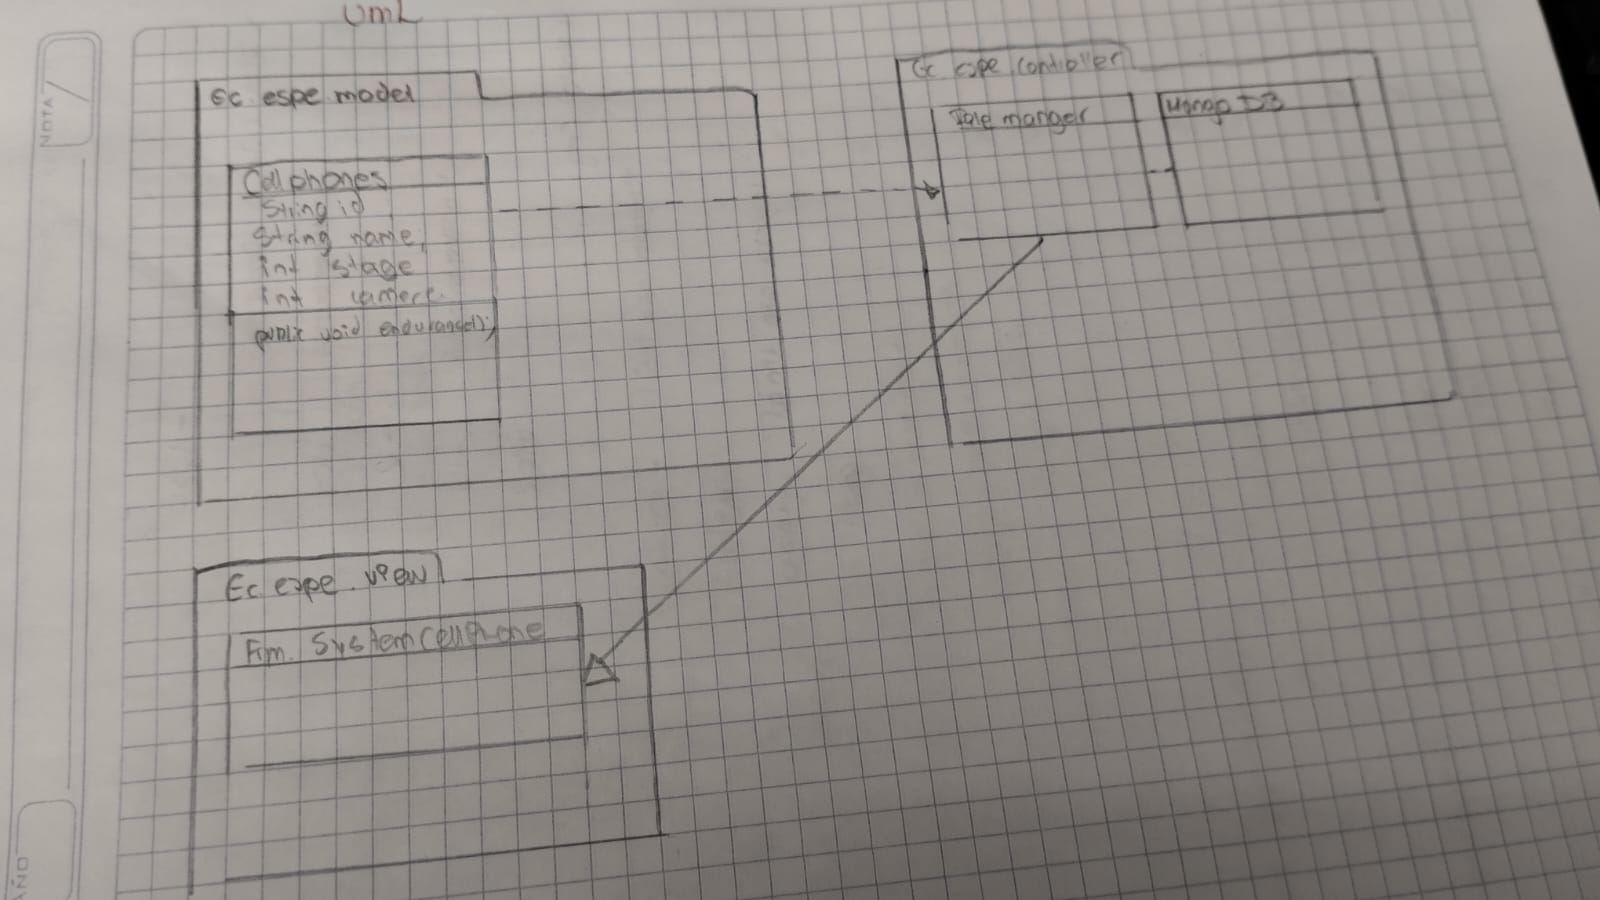 UML
Ec espe model
Cellphones
String id
String name,
int stage
int camera
public void endurance();
Ec espe controller
manger
Mongo DB
Ec espe. view
Frm. SystemCellPhone
NOTA
AÑO